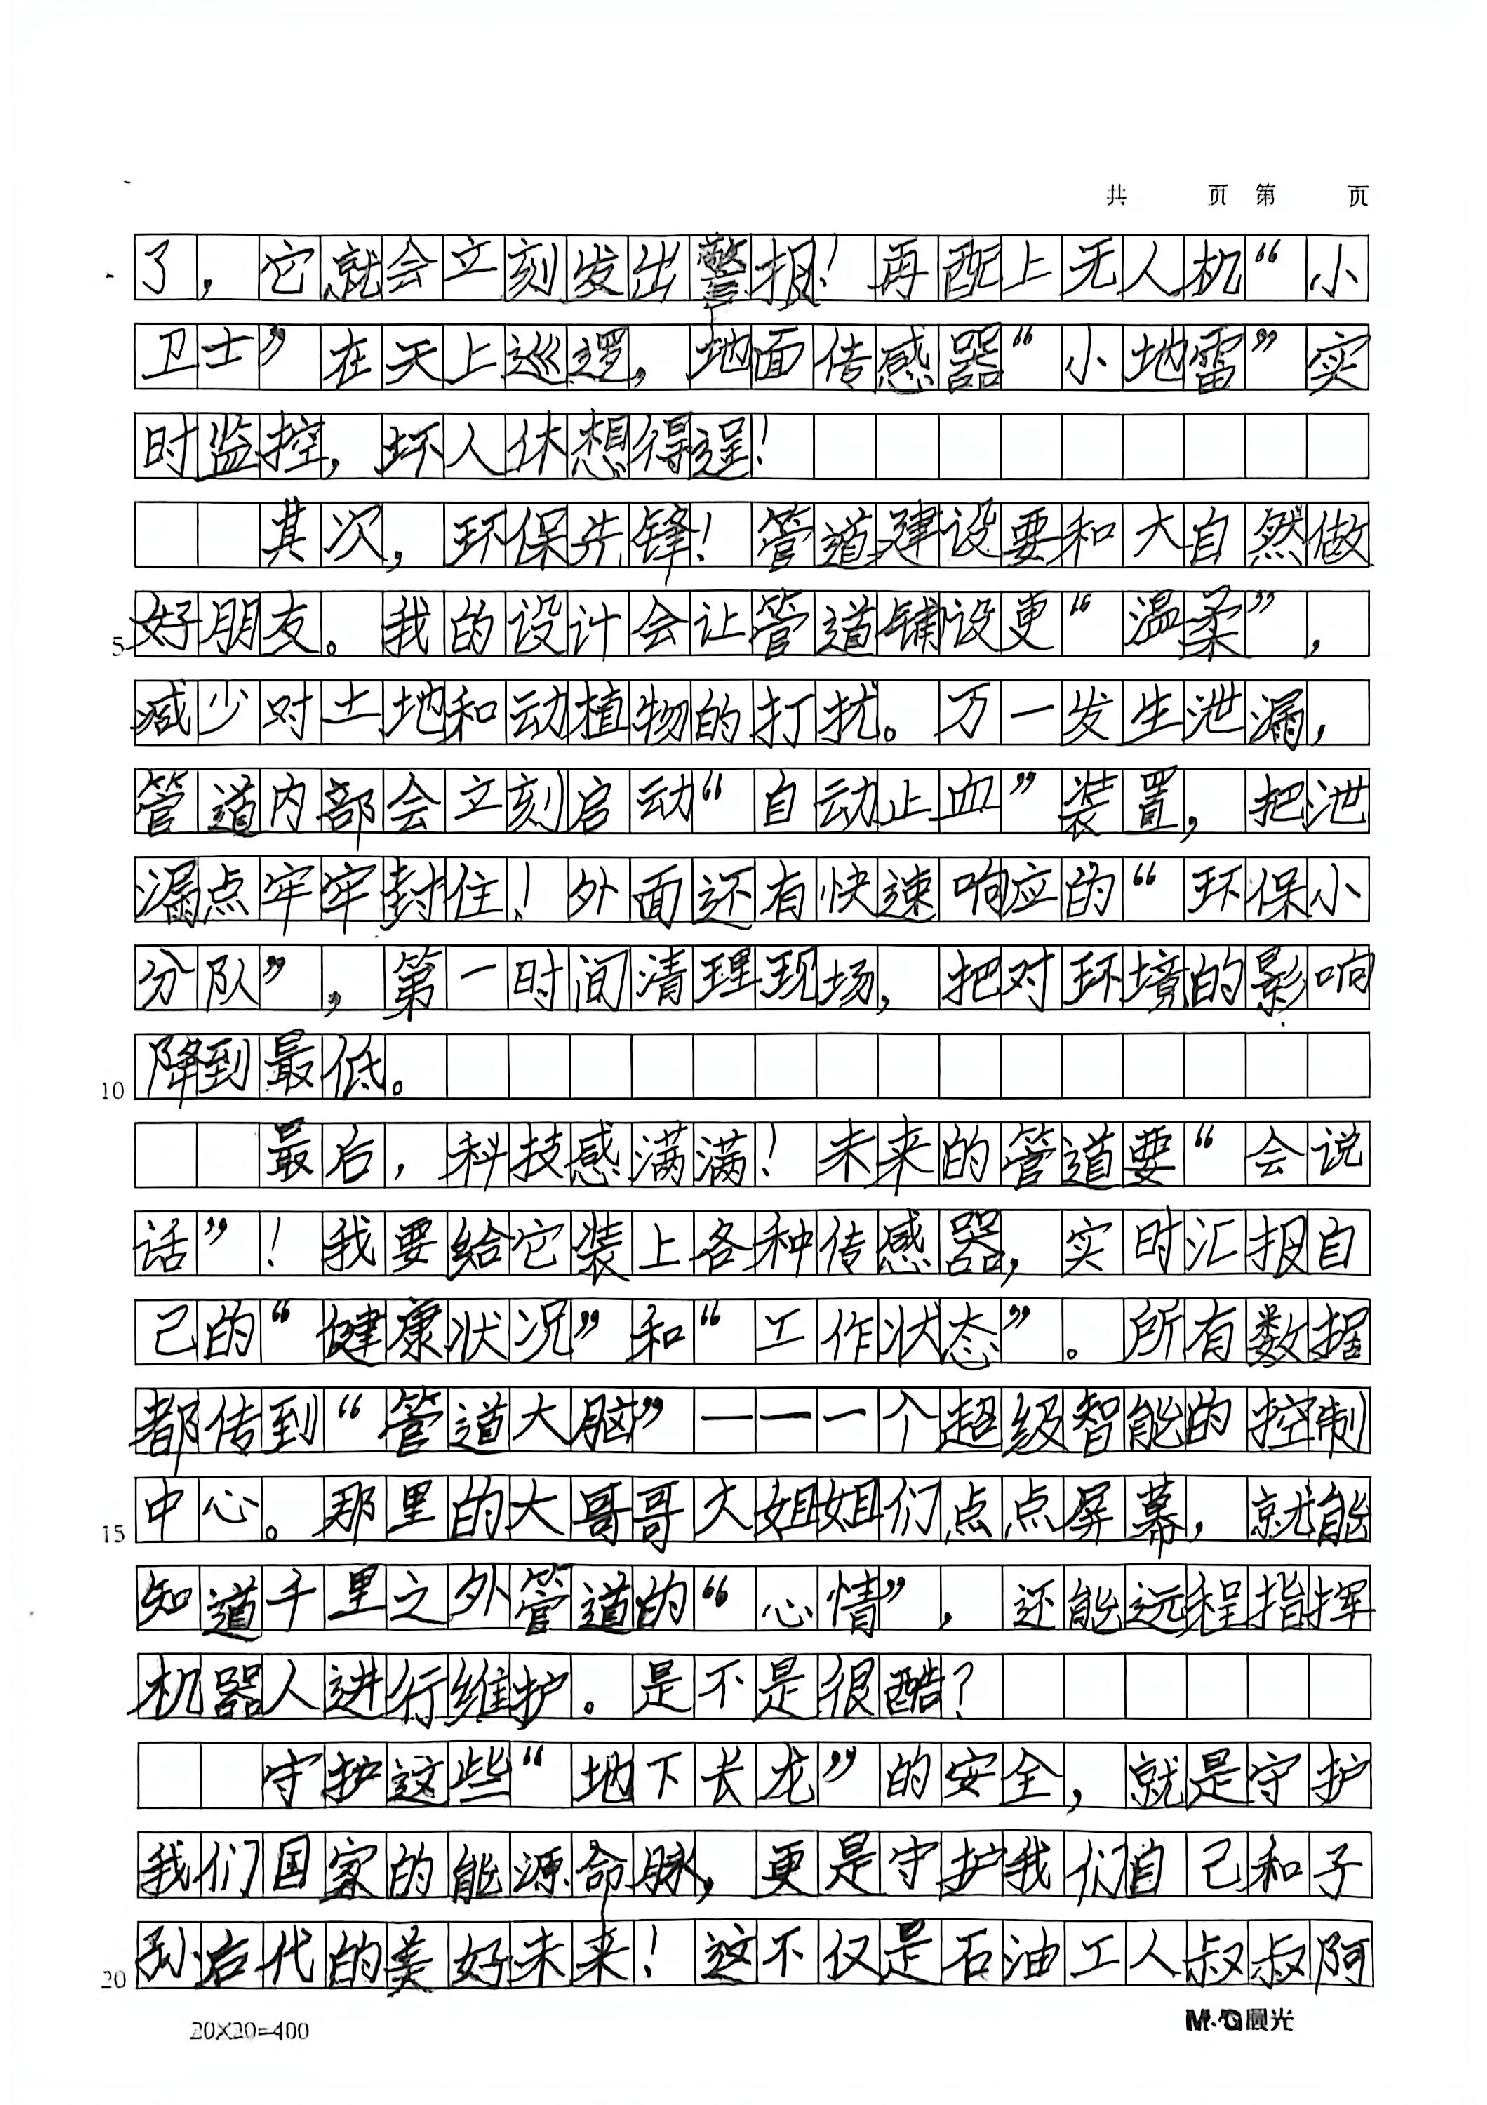 共 页 第 页
了，它就会立刻发出警报！再配上无人机“小
卫士”在天上巡逻，地面传感器“小地雷”实
时监控，坏人休想得逞！
其次，环保先锋！管道建设要和大自然做
5 好朋友。我的设计会让管道铺设更“温柔”，
减少对土地和动植物的打扰。万一发生泄漏，
管道内部会立刻启动“自动止血”装置，把泄
漏点牢牢封住！外面还有快速响应的“环保小
分队”，第一时间清理现场，把对环境的影响
10 降到最低。
最后，科技感满满！未来的管道要“会说
话”！我要给它装上各种传感器，实时汇报自
己的“健康状况”和“工作状态”。所有数据
都传到“管道大脑”——一个超级智能的控制
15 中心。那里的大哥哥大姐姐们点点屏幕，就能
知道千里之外管道的“心情”，还能远程指挥
机器人进行维护。是不是很酷？
守护这些“地下长龙”的安全，就是守护
我们国家的能源命脉，更是守护我们自己和子
20 孙后代的美好未来！这不仅是石油工人叔叔阿
20×20=400
M&G晨光